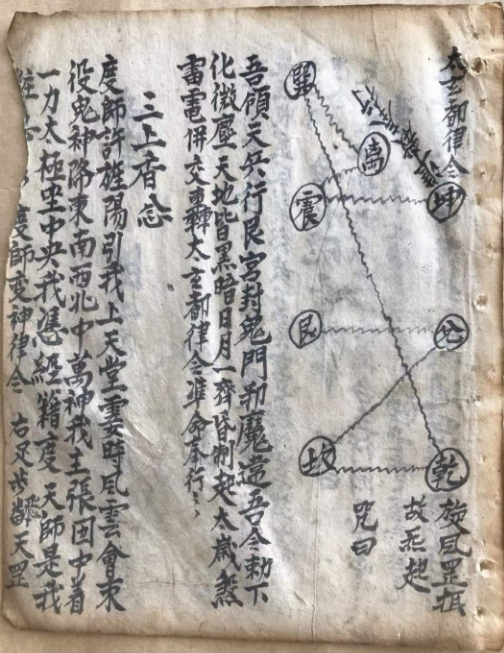 太玄都律令
坤
兌
乾
旋風罡抵
故炁起
咒曰
巽
離
震
艮
坎
吾領天兵行艮宮封鬼門刑魔違吾令勅下
化微塵天地皆黑暗日月一齊昏制起太歲煞
雷電併交轟太玄都律令準令奉行
三上香念
度師許旌陽引我上天堂霎時風雲會東
役鬼神降東南西北中萬神我主張因中着
一力太極坐中央我憑經籍度天師是我
度師變神律令 右足 天罡